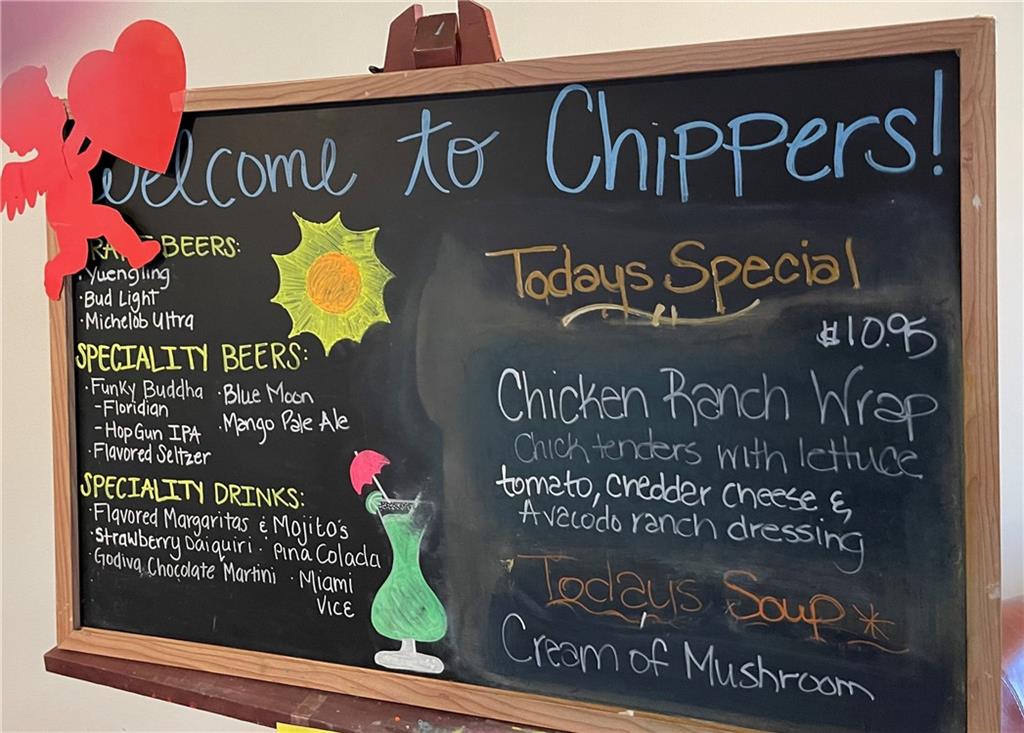 Welcome to Chippers!
BEERS:
·Yuengling
·Bud Light
·Michelob Ultra
SPECIALITY BEERS:
·Funky Buddha
-Floridian
-Hop Gun IPA
·Flavored Seltzer
·Blue Moon
·Mango Pale Ale
SPECIALITY DRINKS:
·Flavored Margaritas & Mojito's
·Strawberry Daiquiri · Pina Colada
·Godiva Chocolate Martini · Miami
Vice
Todays Special
$10.95
Chicken Ranch Wrap
Chick tenders with lettuce
tomato, cheddar cheese &
Avacodo ranch dressing
Todays Soup*
Cream of Mushroom